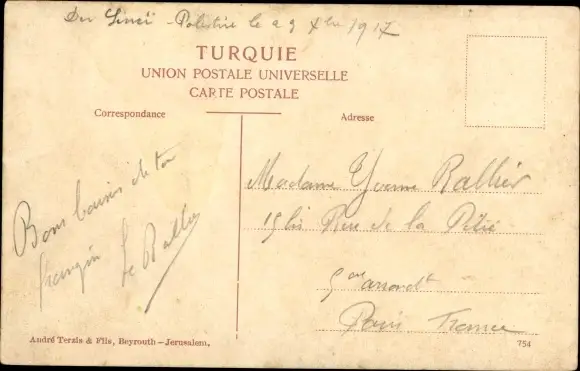 Du Sinaï - Palestine le 29 Xbre 1917
TURQUIE
UNION POSTALE UNIVERSELLE
CARTE POSTALE
Correspondance
Adresse
Bons baisers de ton
frangin
Le Rallier
Madame Yvonne Rallier
15 bis Rue de la Pitié
5ème arrondt
Paris France
André Terzis & Fils, Beyrouth – Jerusalem.
754